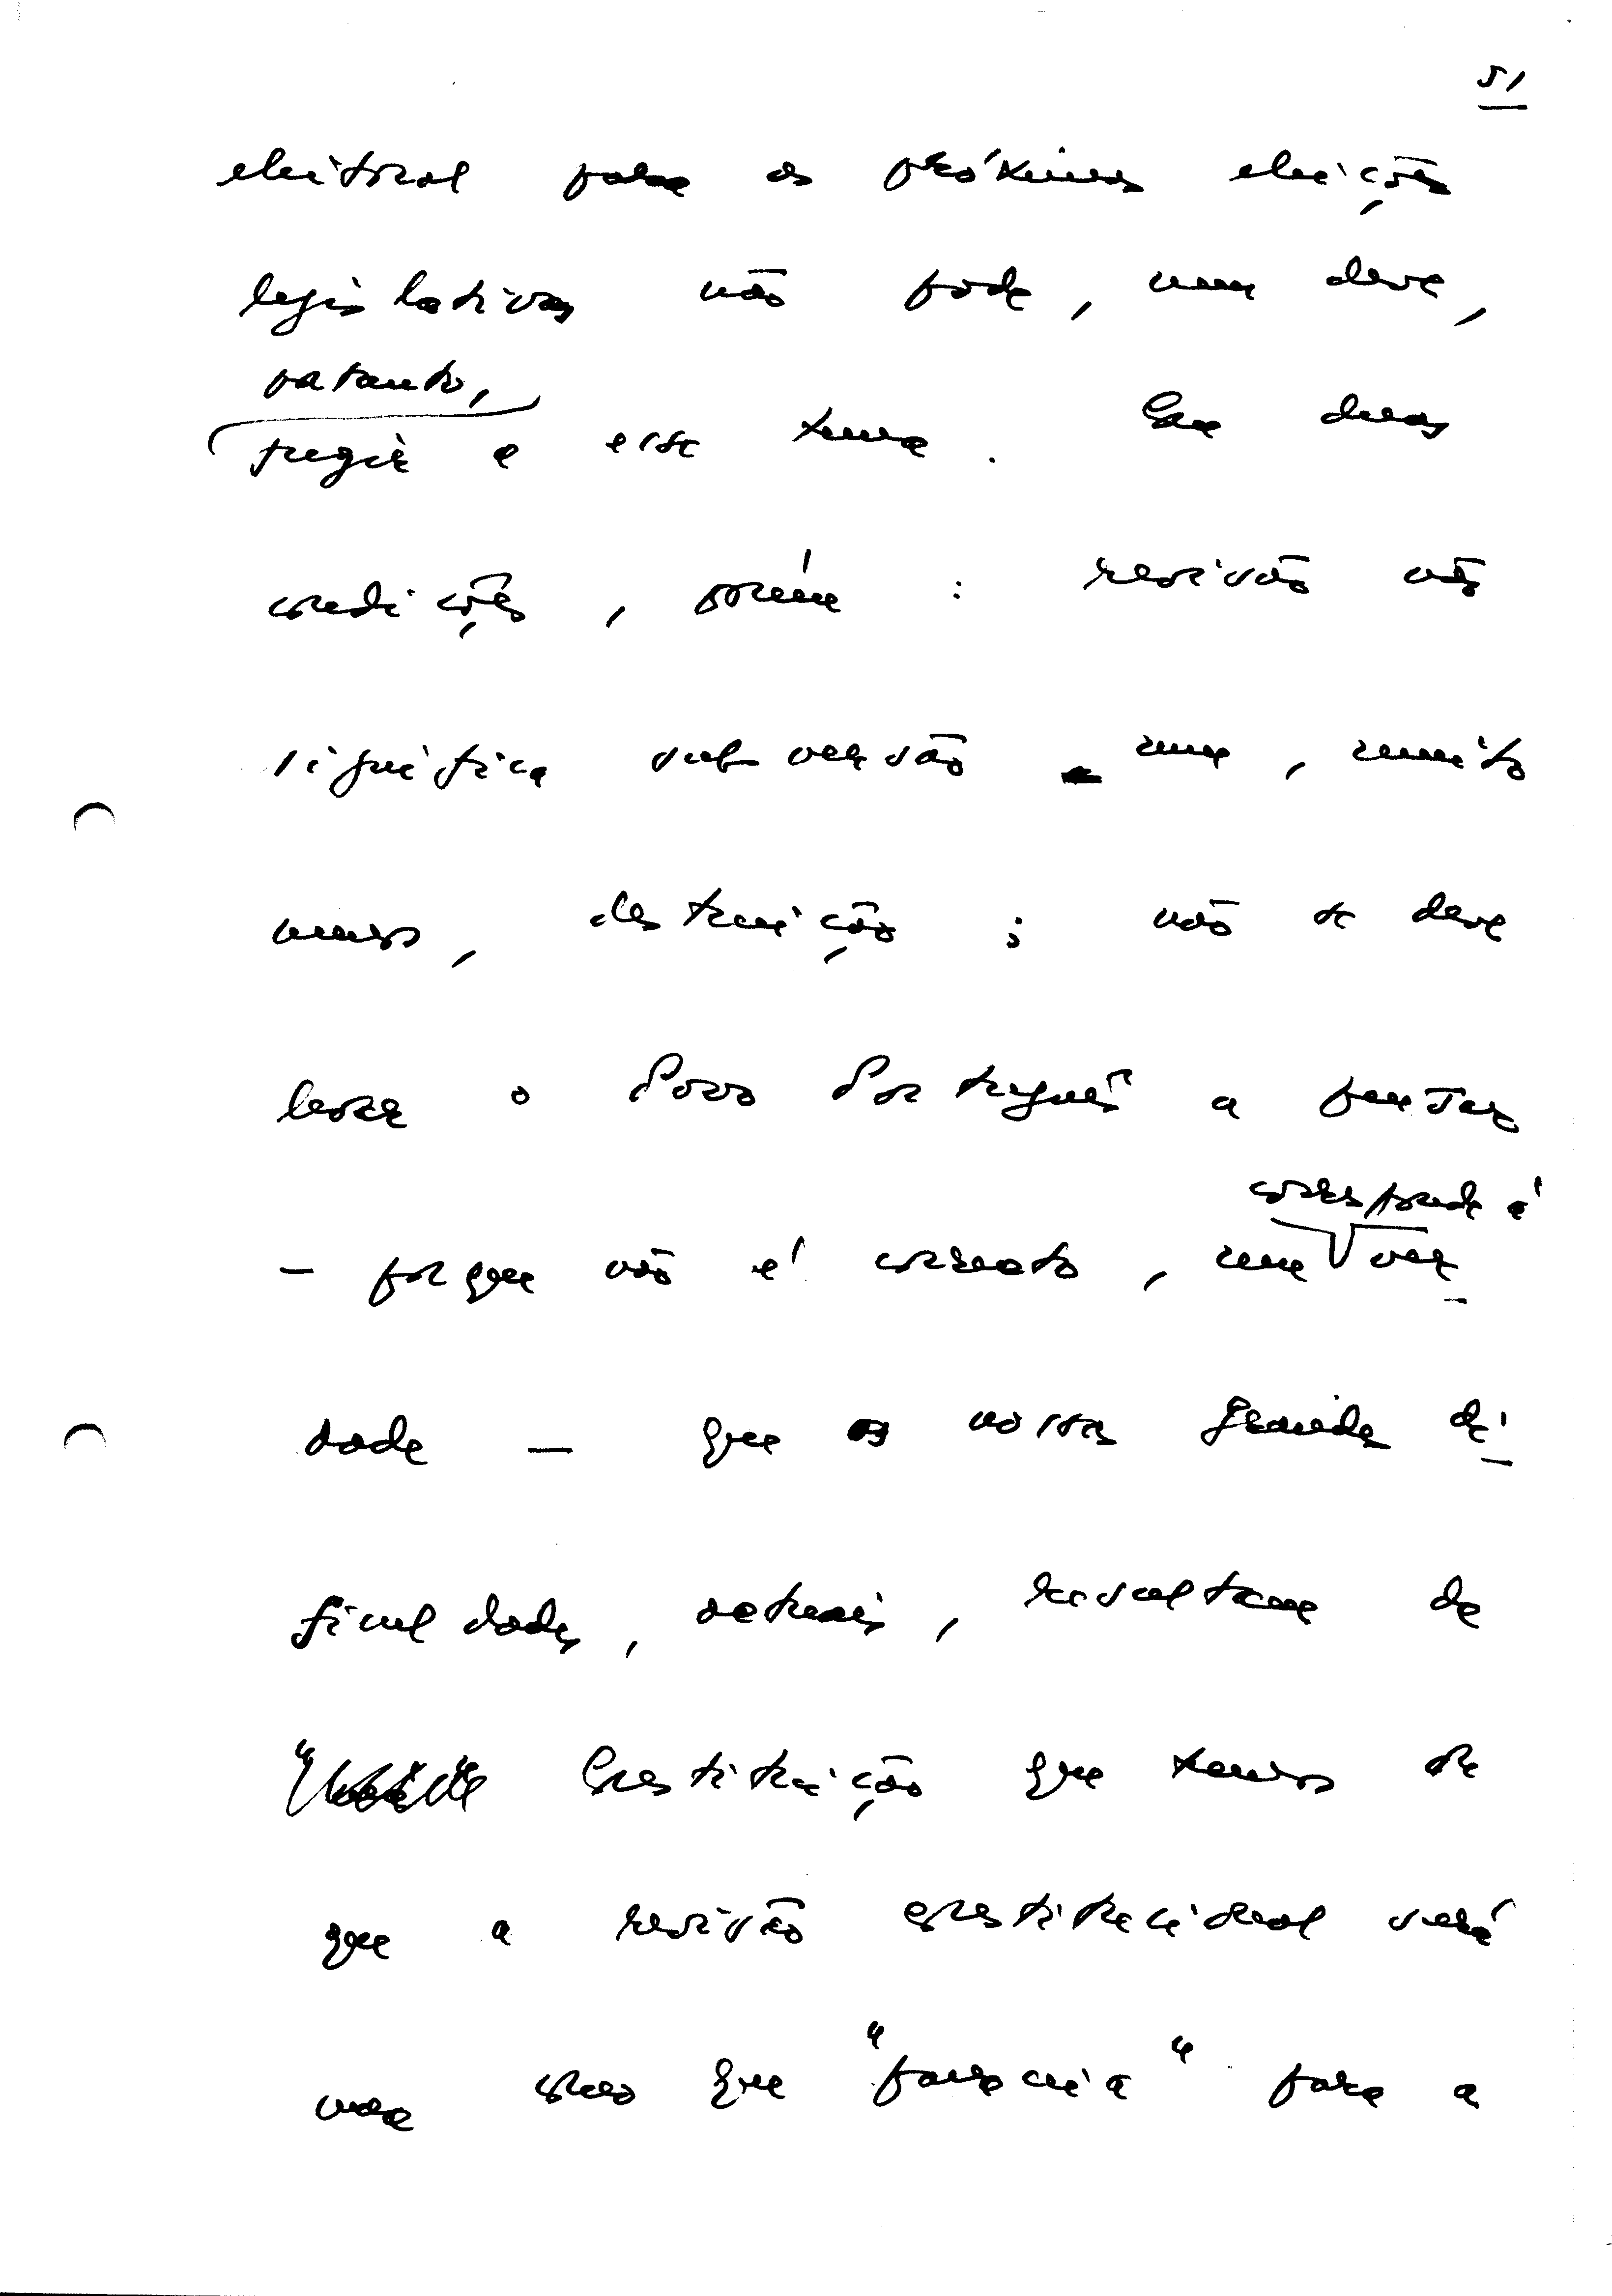 51
eleitoral para as próximas eleições
legislativas não pode, nem deve,
portanto,
fugir a esse tema. Com duas
condições, porém: revisão não
significa subversão nem, muito
menos, destruição; não se deve
levar o Povo Português a pensar
corresponde à
- porque não é correcto, nem ver-
dade - que as nossas grandes di-
ficuldades, actuais, resultam da
Constituição que temos ou
que a revisão constitucional será
uma como que "panaceia" para a